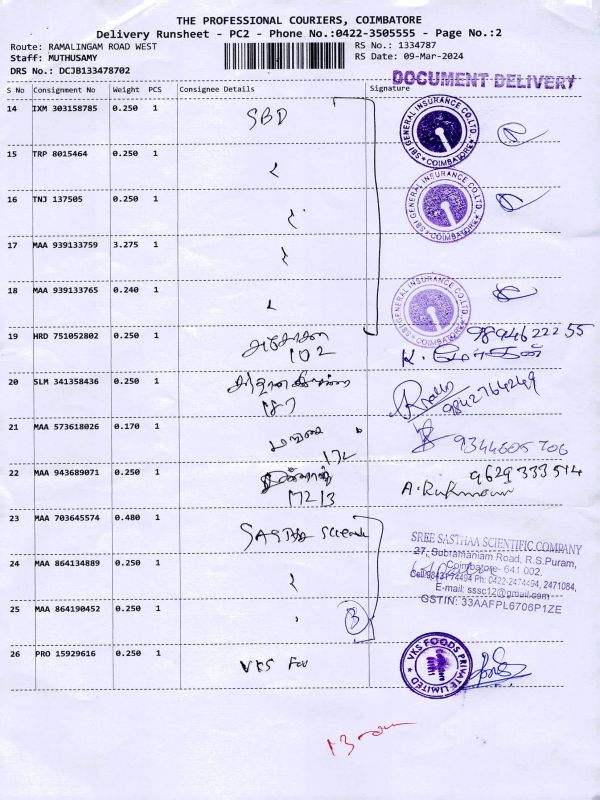 THE PROFESSIONAL COURIERS, COIMBATORE
Delivery Runsheet - PC2 - Phone No.:0422-3505555 - Page No.:2
Route: RAMALINGAM ROAD WEST
RS No.: 1334787
Staff: MUTHUSAMY
RS Date: 09-Mar-2024
DRS No.: DCJB133478702
DOCUMENT DELIVERY
S No Consignment No Weight PCS Consignee Details Signature
14 IXM 303158785 0.250 1
SBI GENERAL INSURANCE CO.LTD. COIMBATORE
15 TRP 8015464 0.250 1
16 TNJ 137505 0.250 1
SBI GENERAL INSURANCE CO.LTD. COIMBATORE
17 MAA 939133759 3.275 1
18 MAA 939133765 0.240 1
SBI GENERAL INSURANCE CO.LTD. COIMBATORE
19 HRD 751052802 0.250 1 9894622255
102 K.
20 SLM 341358436 0.250 1
9842764249
21 MAA 573618026 0.170 1 9344605706
172
22 MAA 943689071 0.250 1 9629333514
1213 A.
23 MAA 703645574 0.480 1
SREE SASTHAA SCIENTIFIC COMPANY
27, Subramaniam Road, R.S.Puram,
24 MAA 864134889 0.250 1 Coimbatore- 641 002.
Cell:9843174494 Ph: 0422-2474494, 2471084,
E-mail: sssc12@gmail.com
25 MAA 864190452 0.250 1 3 GSTIN: 33AAFPL6706P1ZE
26 PRO 15929616 0.250 1 VKS
VKS FOODS PRIVATE LIMITED
13